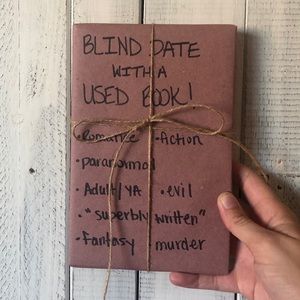 BLIND DATE
WITH A
USED BOOK!
• Romance • fiction
• paranormal
• Adult/YA • evil
• "superbly written"
• Fantasy • murder